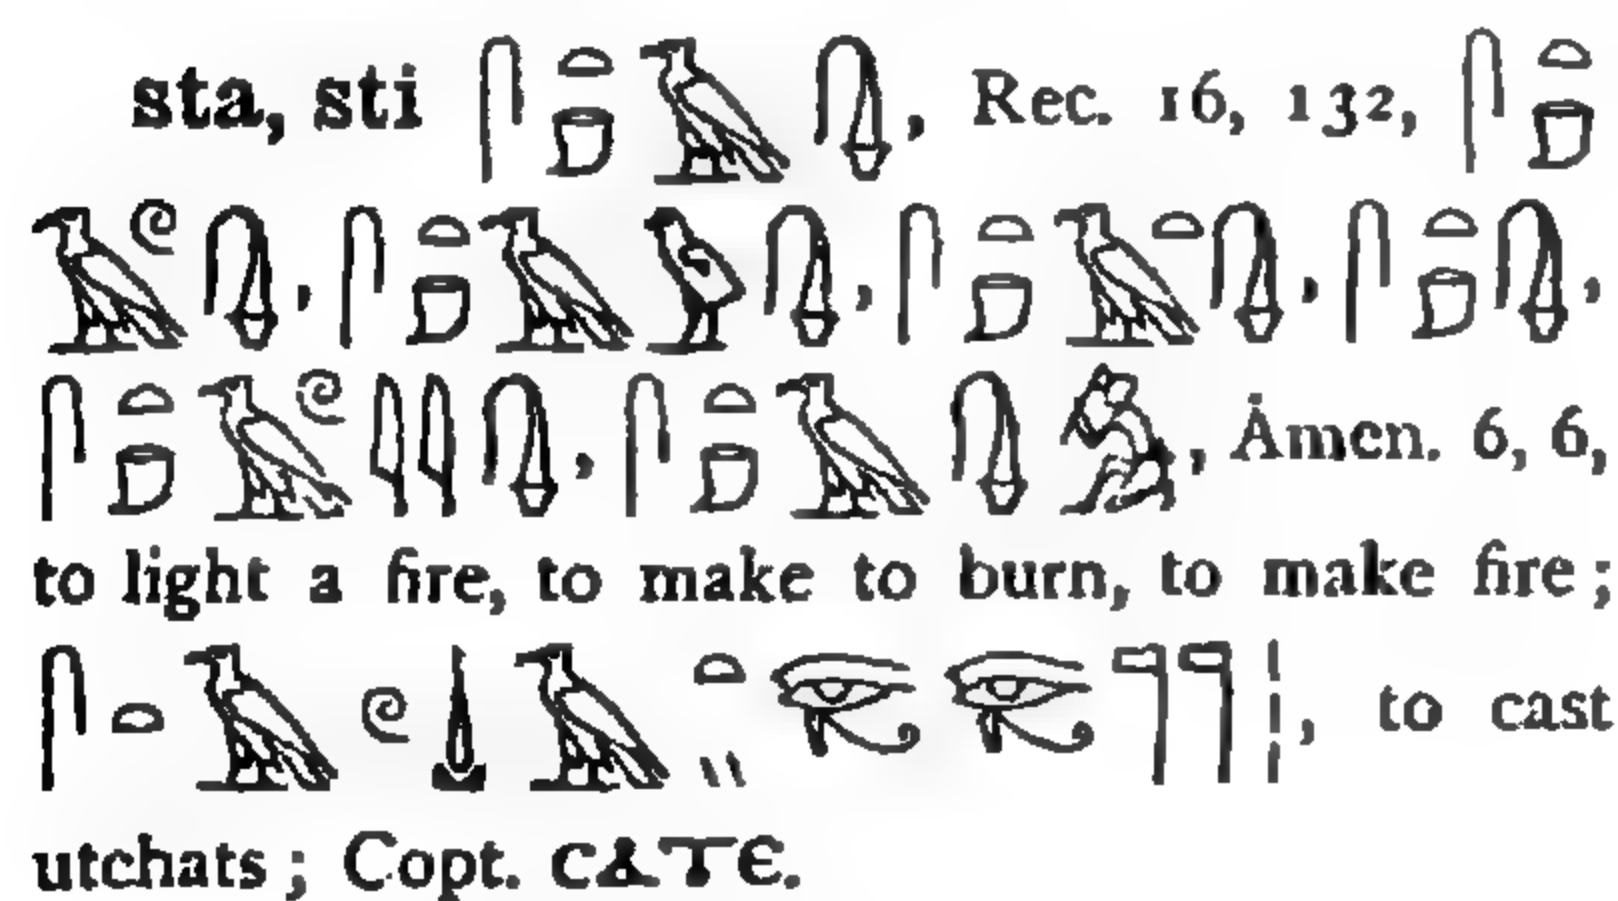 sta, sti 𓋴𓏏𓎼𓄿𓊮, Rec. 16, 132, 𓋴𓏏𓎼
𓄿𓏲𓊮, 𓋴𓏏𓎼𓄿𓅱𓊮, 𓋴𓏏𓎼𓄿𓏏𓊮, 𓋴𓏏𓎼𓊮,
𓋴𓏏𓎼𓄿𓏲𓇌𓊮, 𓋴𓏏𓎼𓄿𓊮, Ȧmen. 6, 6,
to light a fire, to make to burn, to make fire;
𓋴𓏏𓄿𓏲𓍑𓄿𓏏𓏭𓂀𓂀𓊹𓊹𓏼, to cast
utchats; Copt. ⲤⲀⲦⲈ.